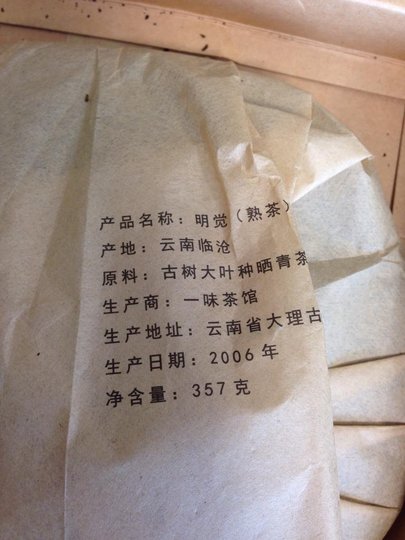 产品名称：明觉（熟茶）
产地：云南临沧
原料：古树大叶种晒青茶
生产商：一味茶馆
生产地址：云南省大理古
生产日期：2006年
净含量：357克